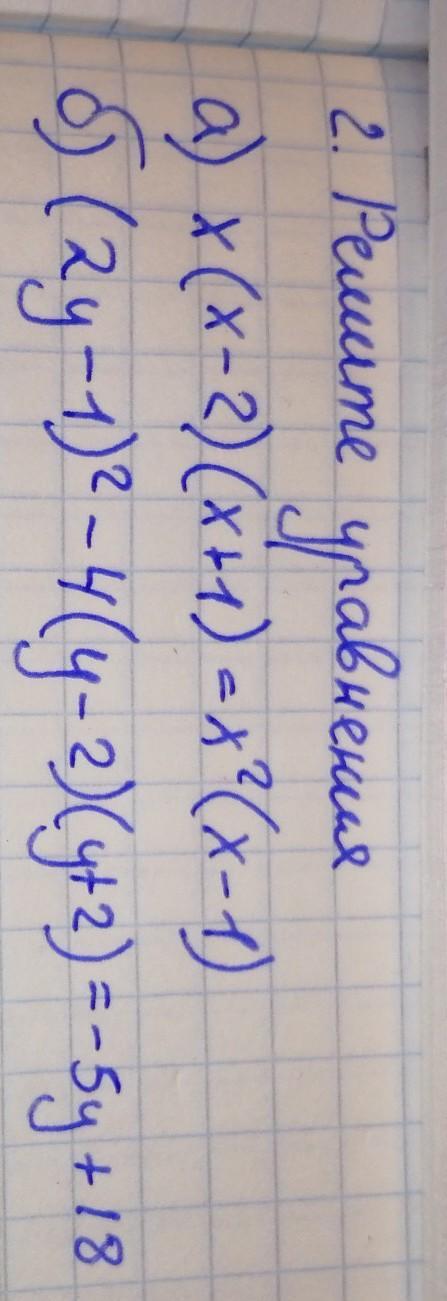 2. Решите уравнения
а) x(x-2)(x+1)=x²(x-1)
б) (2y-1)²-4(y-2)(y+2)=-5y+18